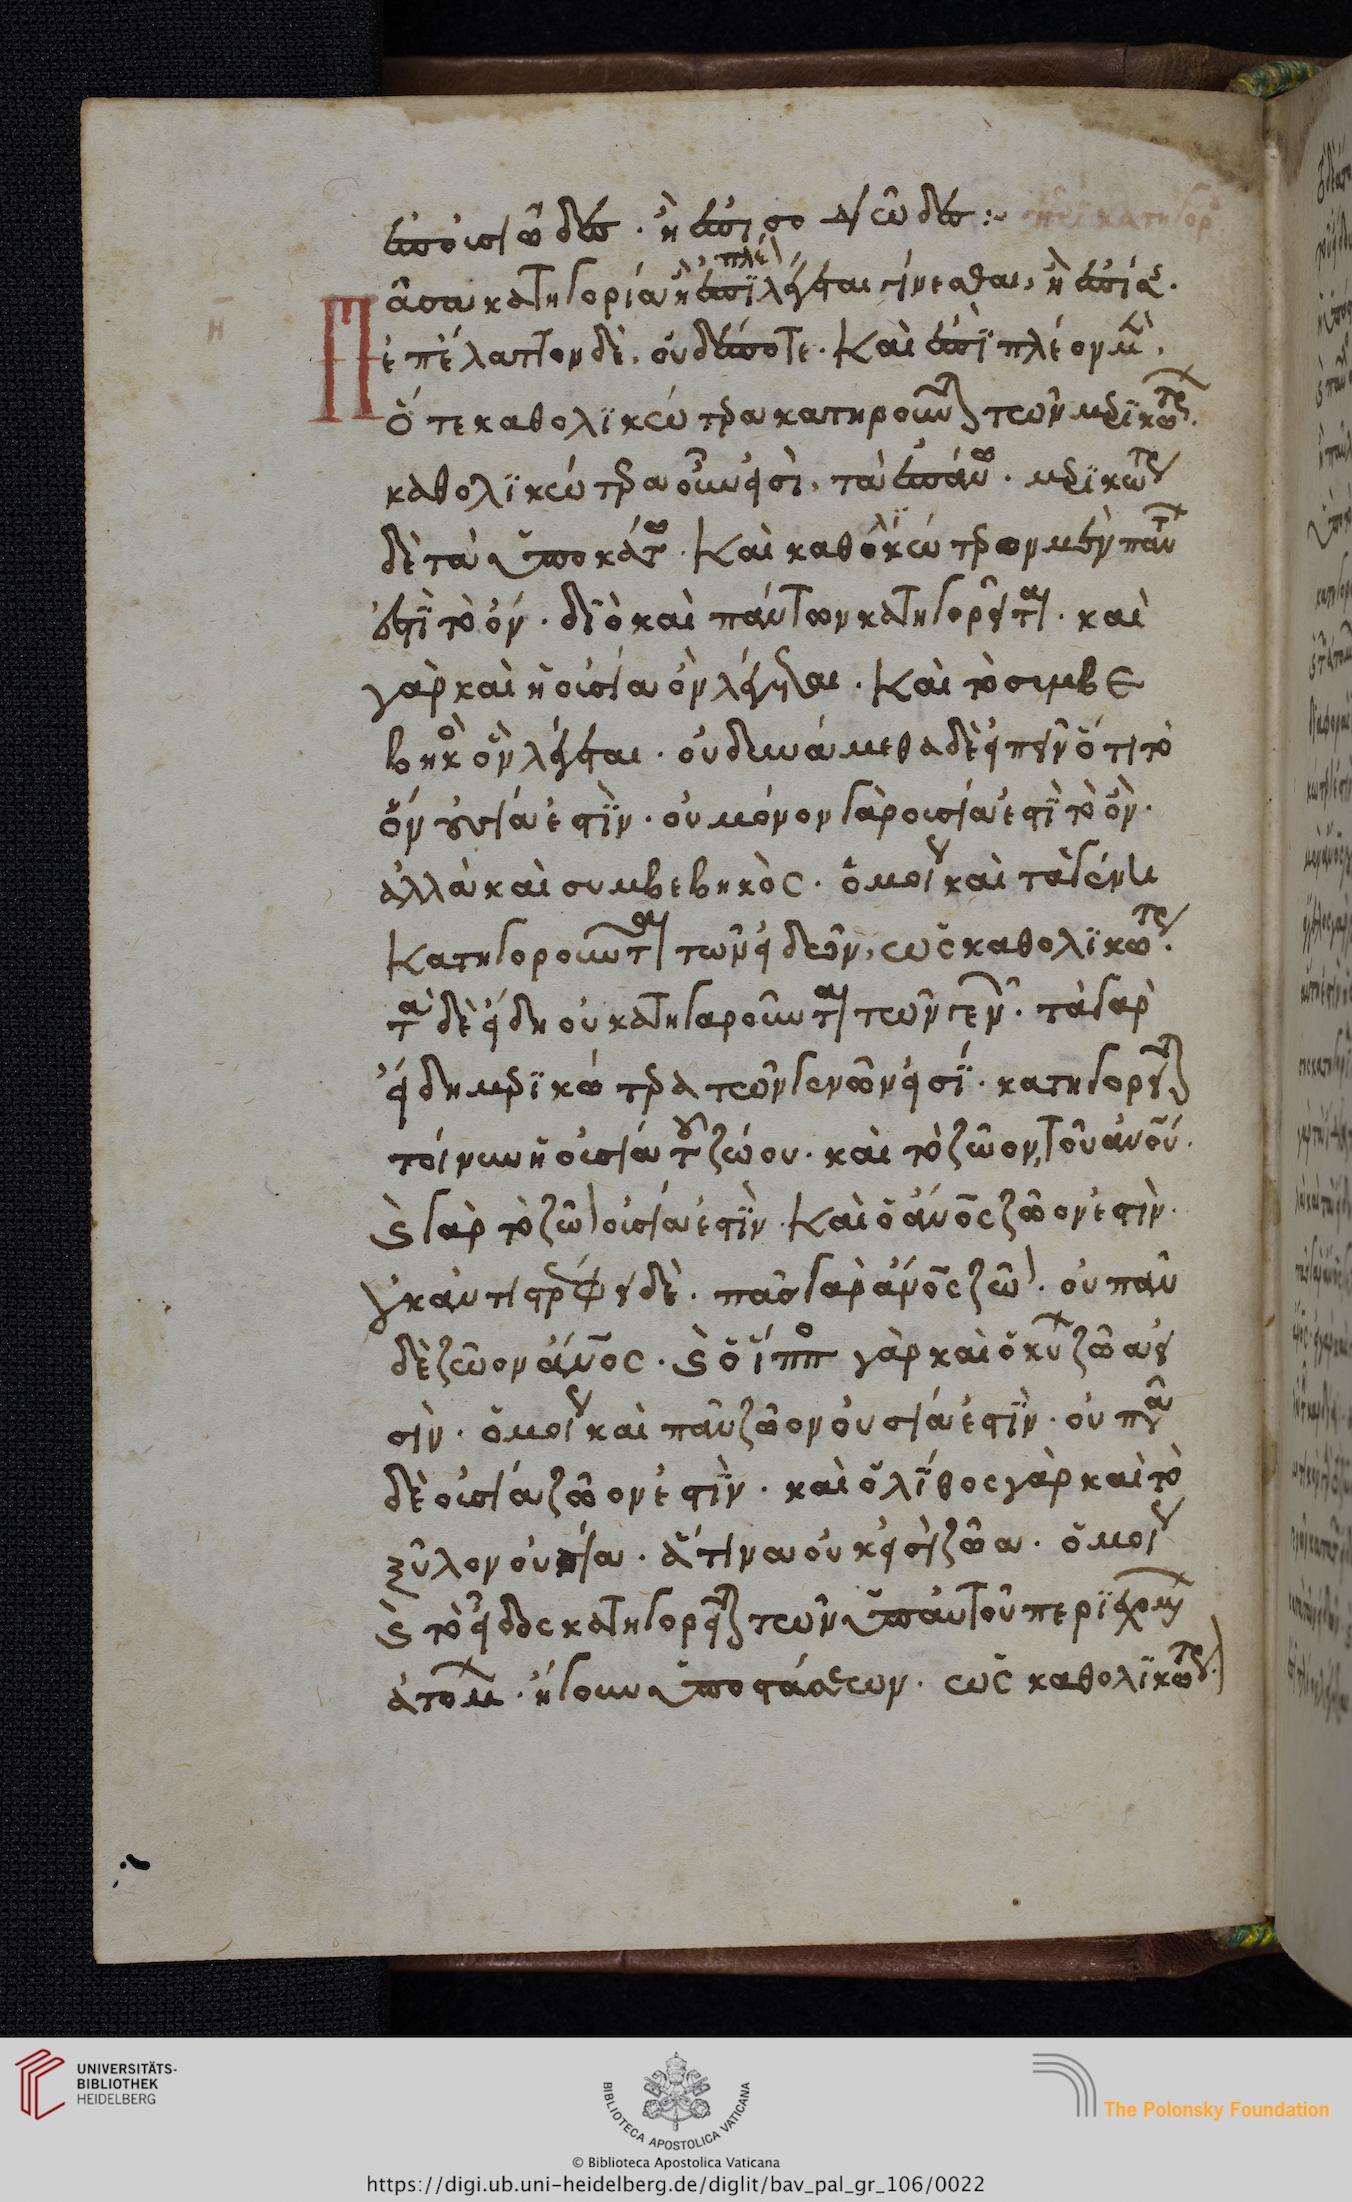 ἐπουσιῶδες. ἢ ἐπεισοδιῶδες :~ περὶ κατηγορί
Πᾶσα κατηγορία ἢ ἐπὶ πλέον λέγεται γίνεσθαι, ἢ ἐπίσης.
ἐπέλαττον δὲ, οὐδέποτε. Καὶ ἐπὶ πλέον μὲν,
ὅτε καθολϊκώτερα κατηγοροῦνται τῶν μερϊκωτέρων.
καθολϊκώτερα οὖν εἰσὶ, τὰ ἐπάνω. μερϊκώτερα
δὲ τὰ ὑποκάτω. Καὶ καθολϊκώτερον μὲν πάντων
ἐστῒ τὸ ὄν. δϊὸ καὶ πάντων κατηγορεῖται. καὶ
γὰρ καὶ ἡ οὐσία ὂν λέγεται. Καὶ τὸ συμβε
βηκὸς ὂν λέγεται. οὐ δυνάμεθα δὲ εἰπεῖν ὅτι τὸ
ὄν οὐσία ἐστῒν. οὐ μόνον γὰρ οὐσία ἐστῒ τὸ ὂν.
ἀλλὰ καὶ συμβεβηκὸς. ὁμοίως καὶ τὰ γένη
κατηγοροῦνται τῶν εἰδῶν, ὡς καθολϊκώτερα.
τὰ δὲ εἴδη οὐ κατηγαροῦνται τῶν γενῶν. τὰ γὰρ
εἴδη μερϊκώτερα τῶν γενῶν εἰσΐ. κατηγορεῖται
τοίνυν ἡ οὐσία τοῦ ζώου. καὶ τὸ ζῶον, τοῦ ἀνοῦ.
καὶ γὰρ τὸ ζῶον οὐσία ἐστῒν. Καὶ ὁ ἄνος ζῶον ἐστὶν.
οὐκ ἀντιστρέφει δὲ. πᾶς γὰρ ἄνος ζῶον. οὐ πᾶν
δὲ ζῶον ἄνος. καὶ ὁ ἵππος γὰρ καὶ ὁ κύων ζῶα εἰ
σὶν. ὁμοίως καὶ πᾶν ζῶον οὐσία ἐστῒν. οὐ πᾶσα
δὲ οὐσία ζῶον ἐστῒν. καὶ ὁ λΐθος γὰρ καὶ τὸ
ξύλον οὐσία. ἅτινα οὐκ εἰσὶ ζῶα. ὁμοίως
καὶ τὸ εἶδος κατηγορεῖται τῶν ὑπ' αὐτοῦ περϊεχομένων
ἀτόμων. ἤγουν ὑποστάσεων. ὡς καθολϊκώτερον.
UNIVERSITÄTS-
BIBLIOTHEK
HEIDELBERG
BIBLIOTECA APOSTOLICA VATICANA
The Polonsky Foundation
© Biblioteca Apostolica Vaticana
https://digi.ub.uni-heidelberg.de/diglit/bav_pal_gr_106/0022